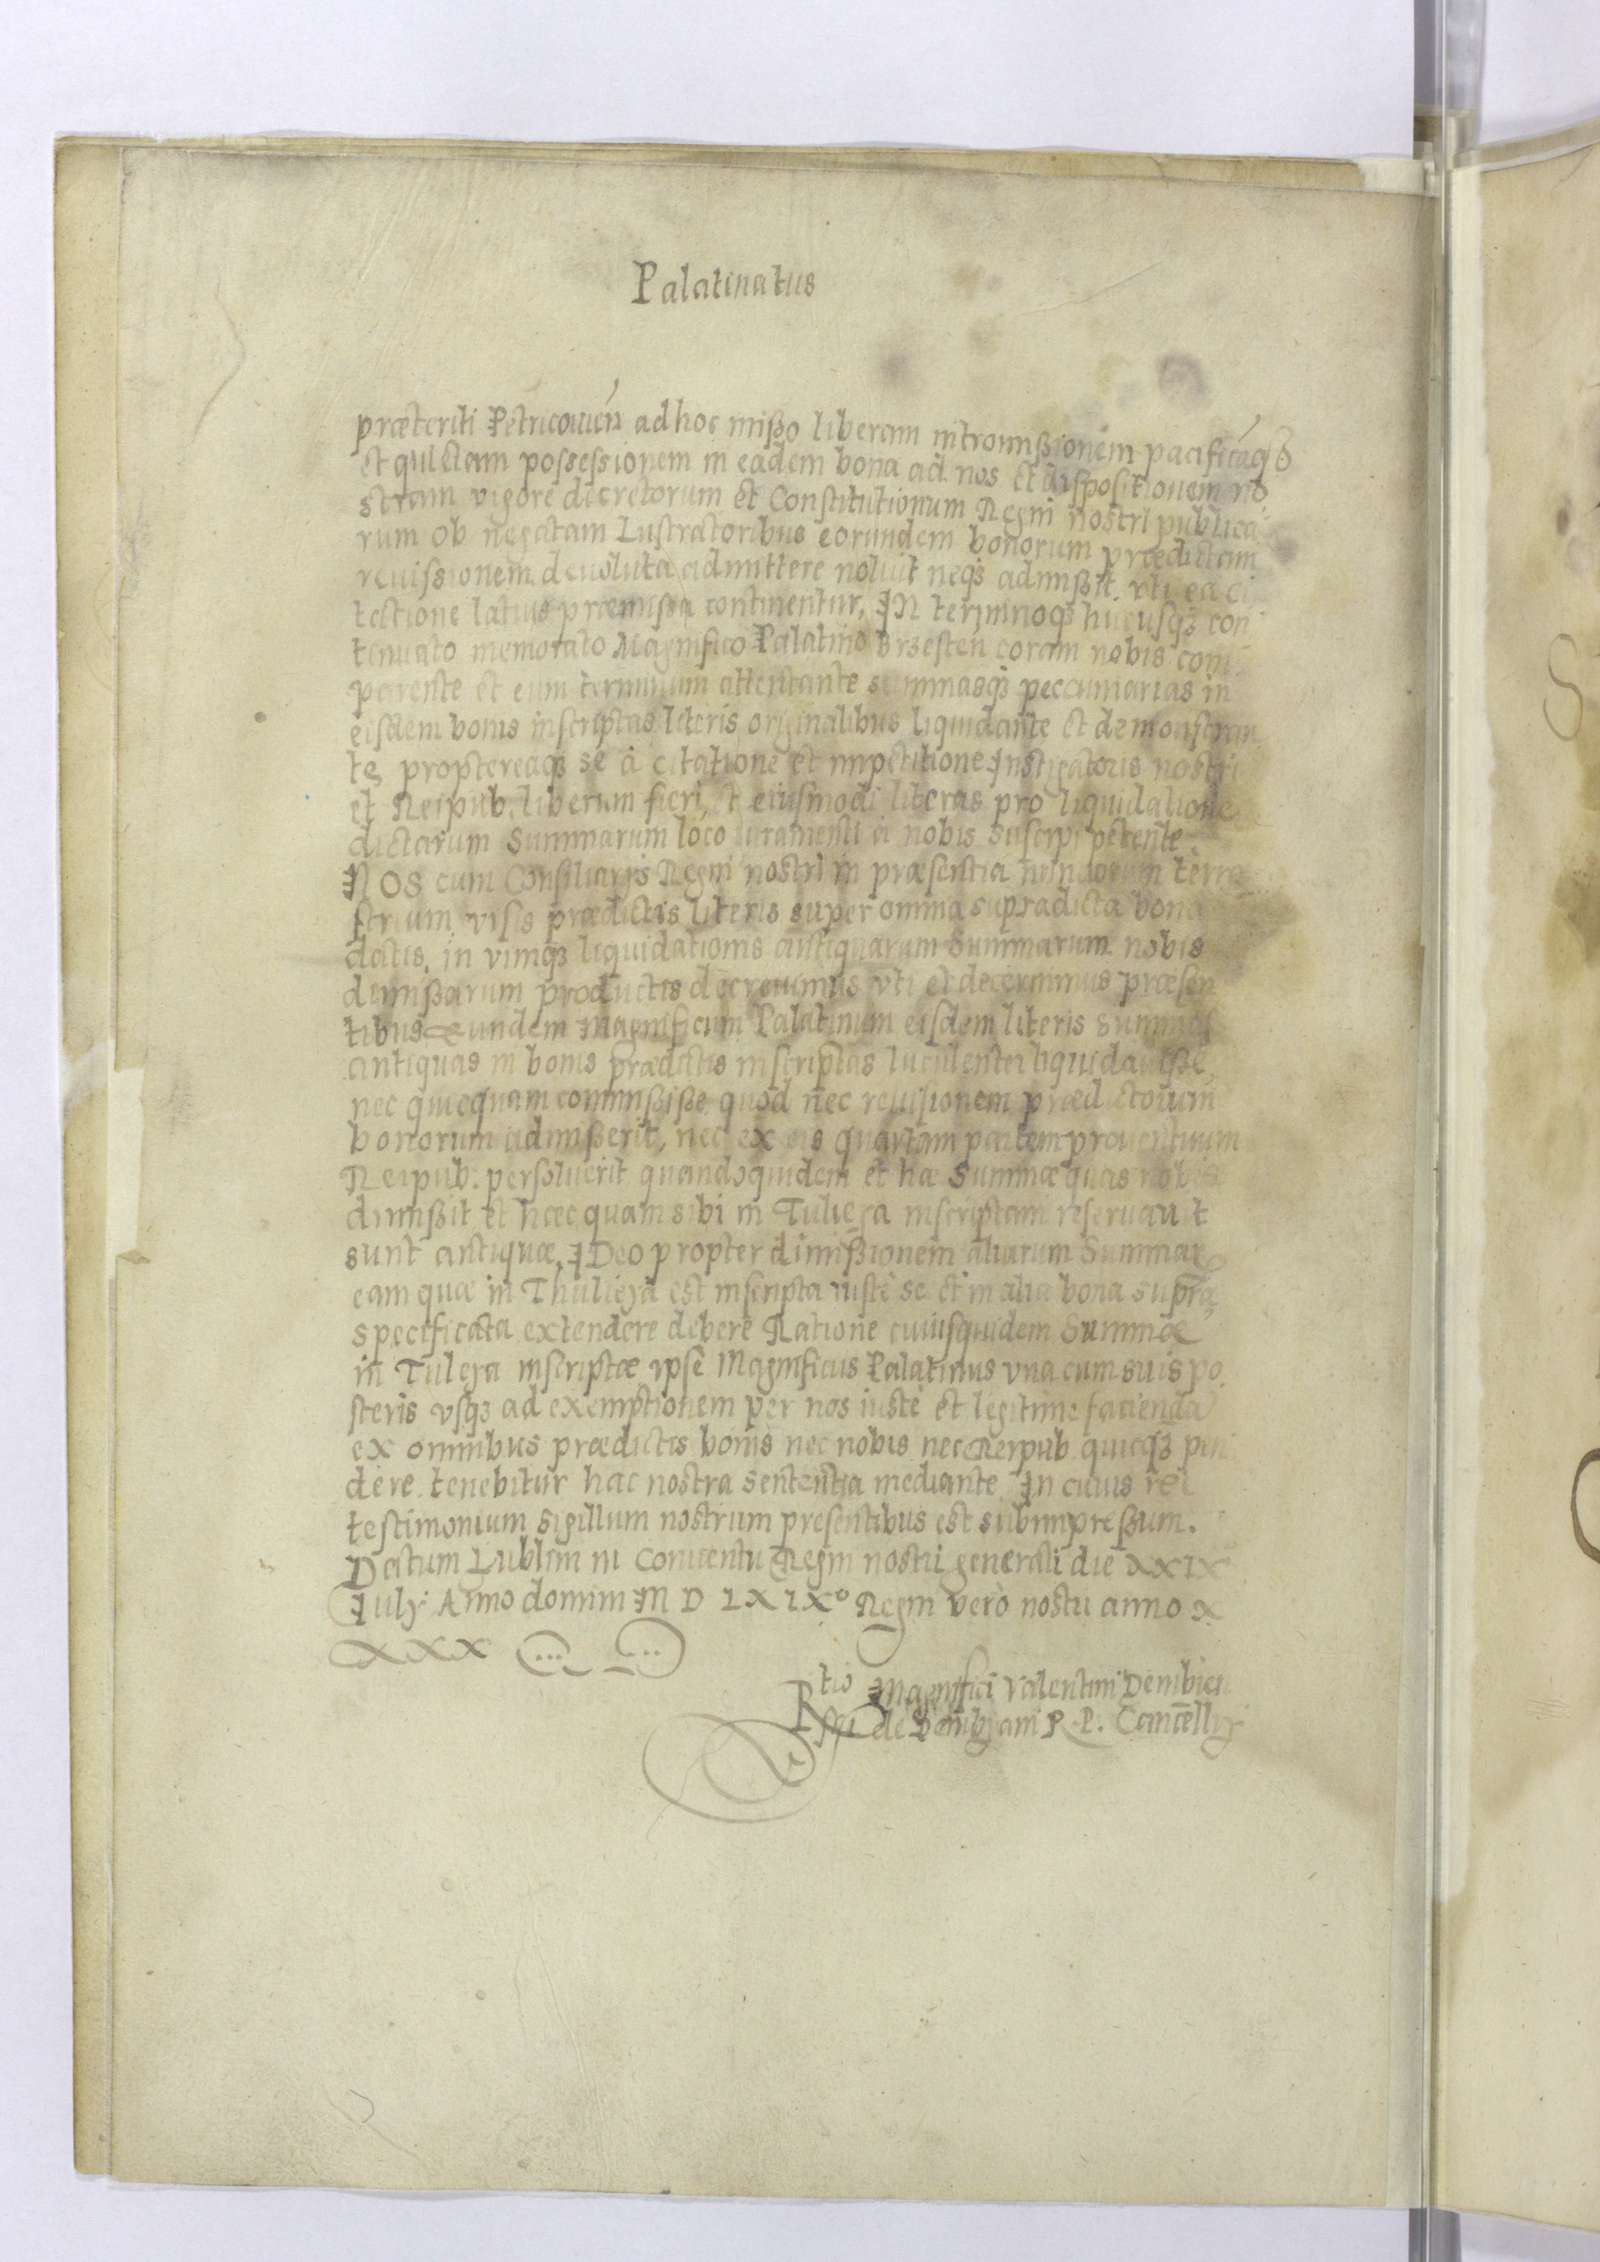 Palatinatus
præteriti Petricouień ad hoc mißo liberam intromißionem pacificaq3
et quietam possessionem in eadem bona ad nos et dispositionem no
stram vigore decretorum et Constitutionum Regni nostri publica
rum ob negatam Lustratoribus eorundem bonorum prædictam
reuissionem deuoluta admittere noluit neq3 admißit. vti ea ci
tatione latius præmissa continentur, IN terminoq3 hucusq3 con
tinuato memorato Magnifico Palatino Brzesten coram nobis com
parente et eum terminum attentante summasq3 peccuniarias in
eisdem bonis inscriptas literis originalibus liquidante et demonstran
te, proptereaq3 se à citatione et impetitione Instigatoris nostri
et Reipub. liberum fieri, et eiusmodi literas pro liquidatione
dictarum Summarum loco iuramenti a nobis suscipi petente
NOS cum Consiliarijs Regni nostri in præsentia nunciorum terre
strium visis prædictis literis super omnia supradicta bona
datis, in vimq3 liquidationis antiquarum Summarum nobis
dimißarum productis decreuimus vti et decernimus præsen
tibus eundem Magnificum Palatinum eisdem literis summas
antiquas in bonis prædictis inscriptas luculenter liquidauisse,
nec quicquam commißiße quod nec reuisionem prædictorum
bonorum admißerit, nec ex eis quartam partem prouentuum
Reipub. persoluerit quandoquidem et hæ Summæ quas nobis
dimißit et hæc quam sibi in Tulieya inscriptam reseruauit
sunt antiquæ, IDeo propter dimißionem aliarum Summar
eam quæ in Thulieya est inscripta iuste se et in alia bona supra
specificata extendere debere Ratione cuiusquidem Summæ
in Tuleya inscriptæ ipse Magnificus Palatinus vna cum suis po
steris vsq3 ad exemptionem per nos iustè et legitime facienda
ex omnibus prædictis bonis nec nobis nec Reipub quicq3 pen
dere tenebitur hac nostra sententia mediante, In cuius rei
testimonium sigillum nostrum presentibus est subimpreßum.
Datum Lublini in Conuentu Regni nostri generali die XXIX
Iulij Anno domini M D LXIX° Regni verò nostri anno X
XXX
Rtio Magnifici Valentini Dembien
ski de Dembyani R. P. Cancellarij